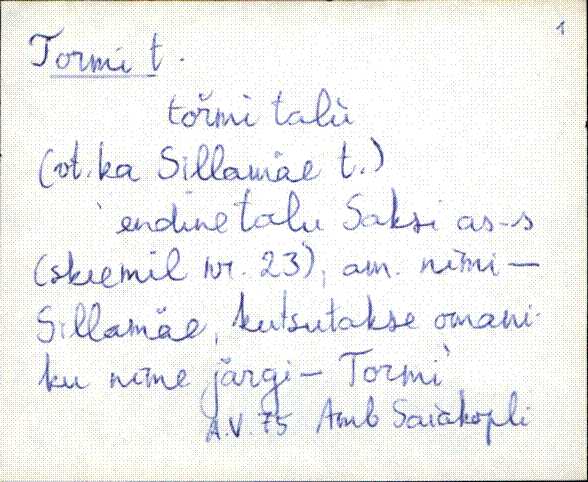 1
Tormi t.
tořmi talù
(vt. ka Sillamäe t.)
endine talu Saksi as-s
(skeemil nr. 23), am. nimi -
Sillamäe, kutsutakse omani-
ku nime järgi - Tormi
A.V. 75 Amb Saiakopli